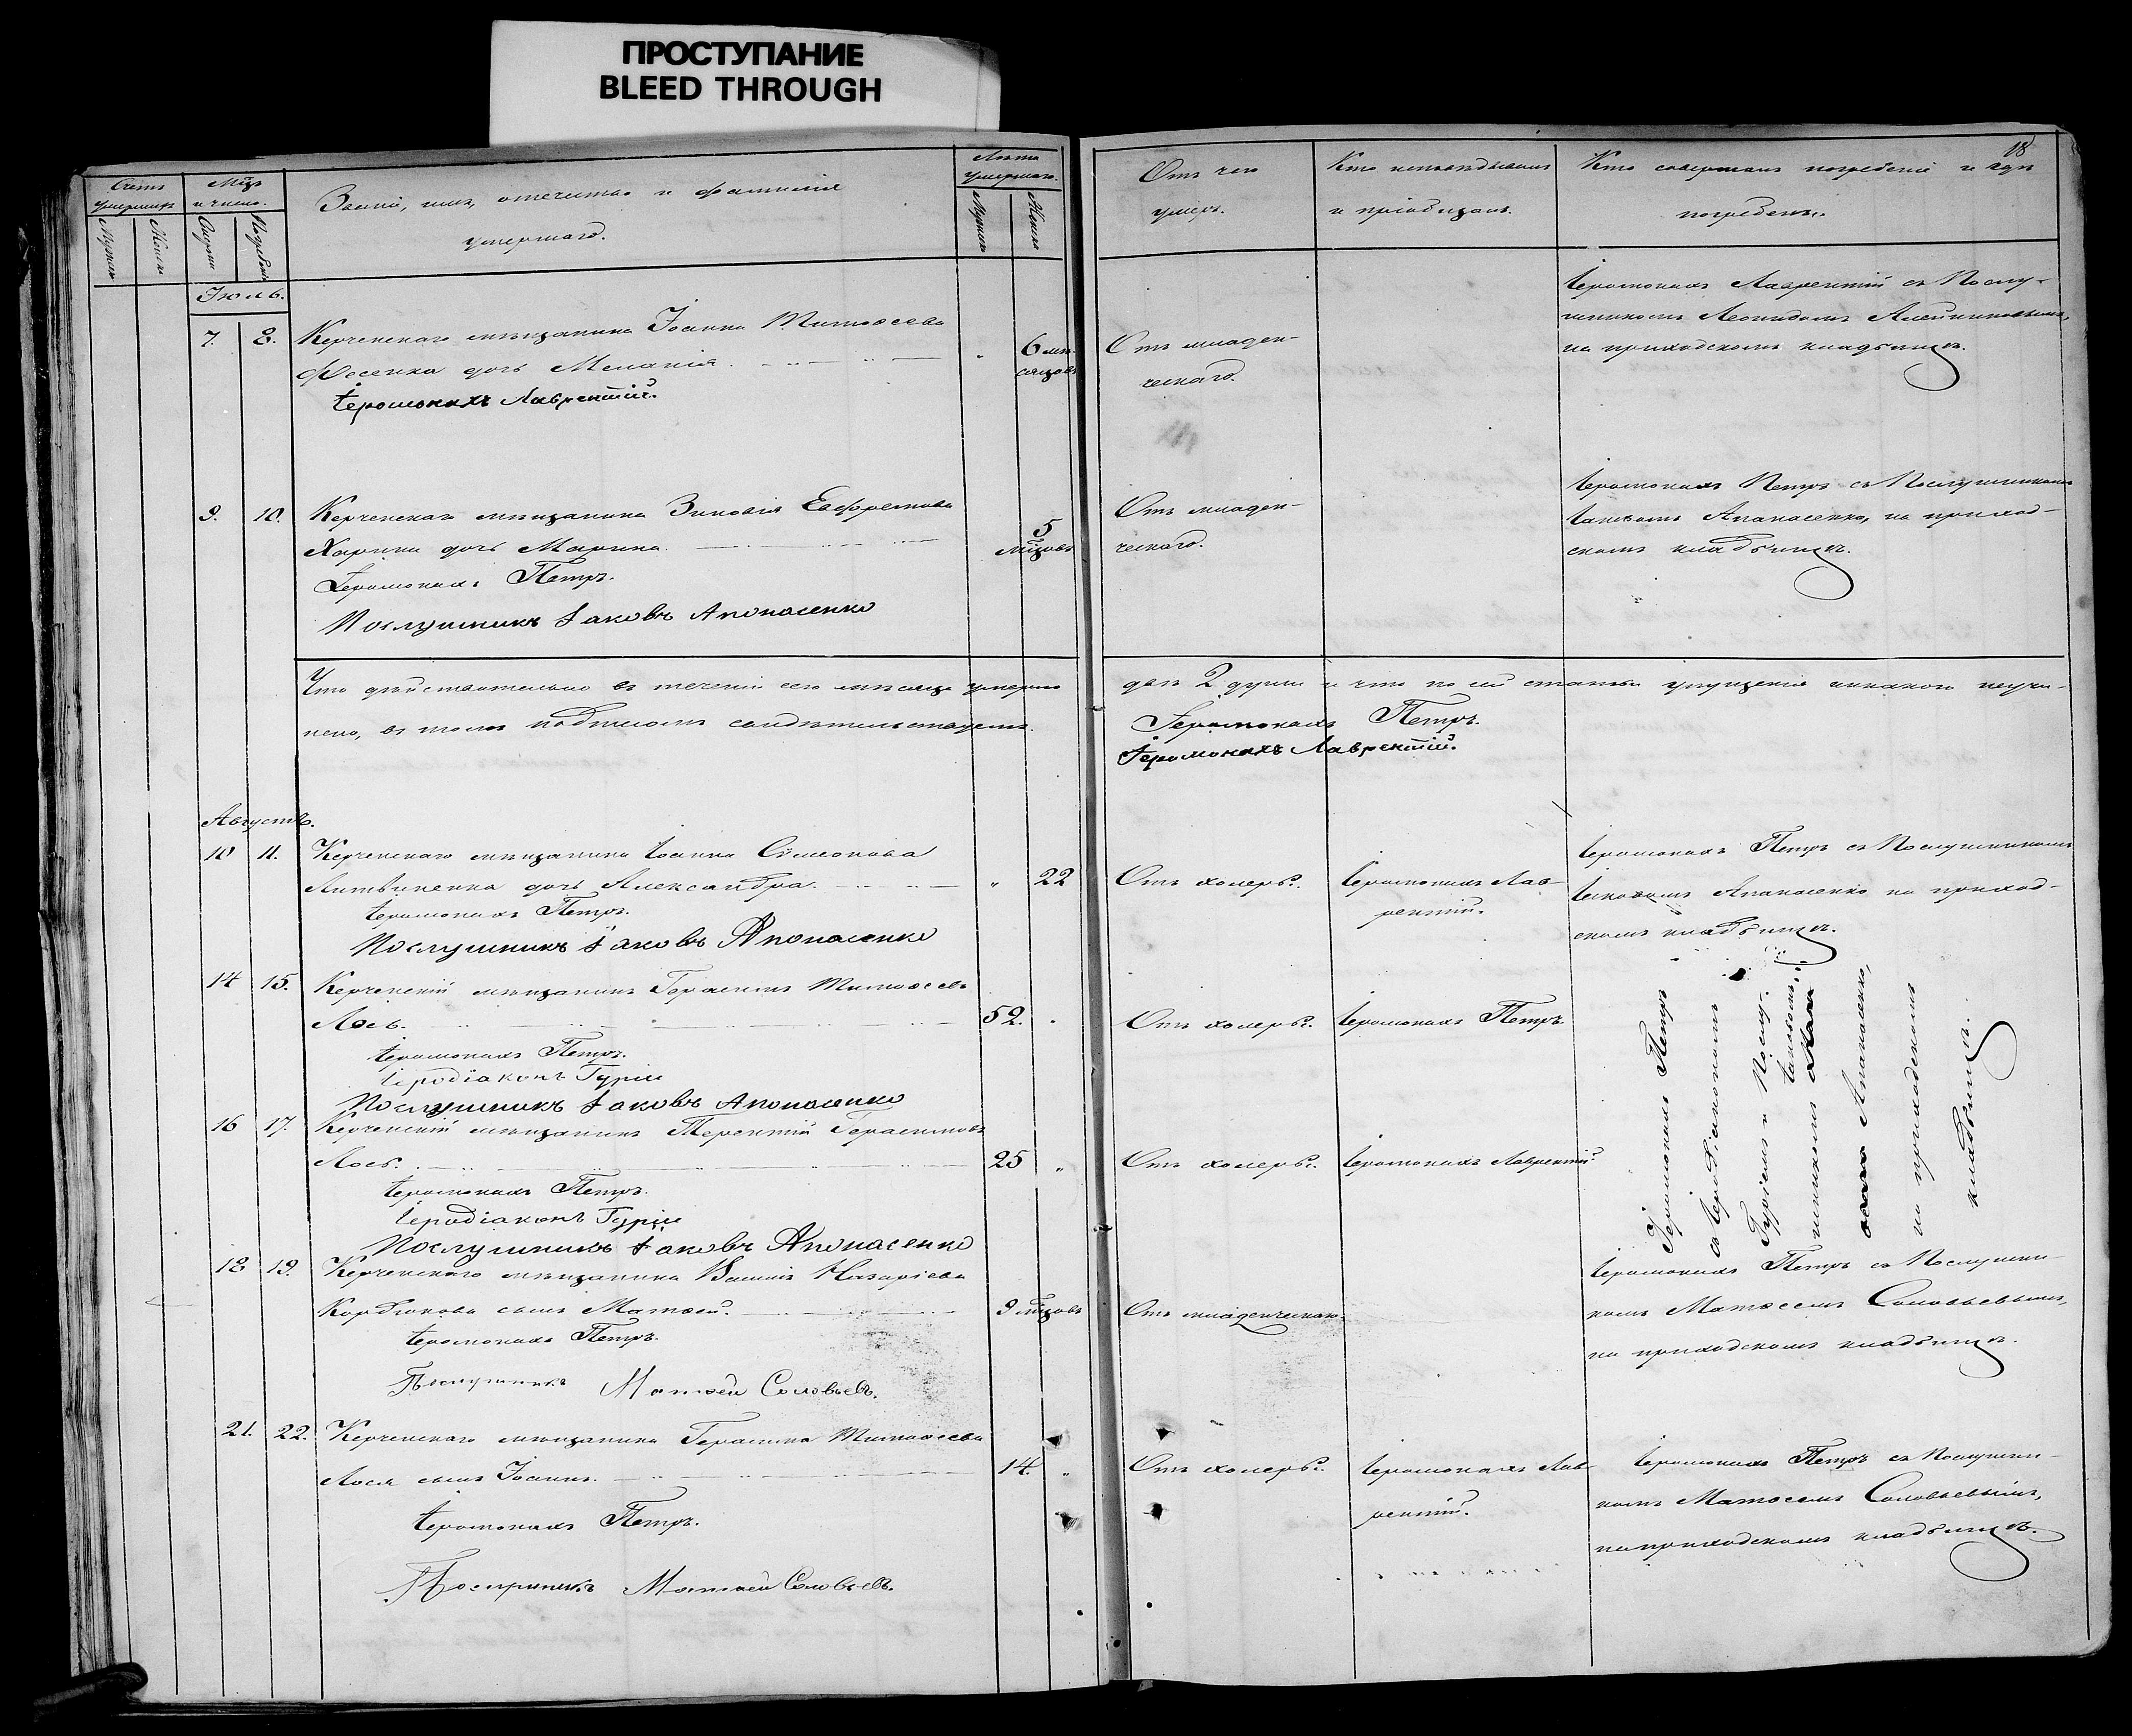 ПРОСТУПАНИЕ
BLEED THROUGH
Счетъ умершихъ
Мужск.
Женск.
Мѣсяцъ и число.
Звание, имя, отечество и фамилія
умершаго.
Лѣта умершаго.
Мужск.
Женск.
Іюль.
7. 8. Керченскаго мѣщанина Іоанна Тимоѳеева
Фесенка дочь Меланія. 6 мѣ-
сяцовъ
Іеромонахъ Лаврентій.
9. 10. Керченскаго мѣщанина Зиновія Евфремова
Харина дочь Марина. 5 мѣсяцовъ
Іеромонахъ Петръ.
Послушникъ Іаковъ Апонасенко
Что дѣйствительно въ теченіи сего мѣсяца умерло
нено, въ томъ подписомъ свидѣтельствуемъ.
Августъ.
10 11. Керченскаго мѣщанина Іоанна Симеонова
Литвиненка дочь Александра. „ 22
Іеромонахъ Петръ.
Послушникъ Іаковъ Апонасенко
14 15. Керченскій мѣщанинъ Герасимъ Тимоѳеевъ
Лось. 52. „
Іеромонахъ Петръ.
Іеродіаконъ Гурій
Послушникъ Іаковъ Апонасенко
16 17. Керченскій мѣщанинъ Терентій Герасимовъ
Лось. 25 „
Іеромонахъ Петръ.
Іеродіаконъ Гурій
Послушникъ Іаковъ Апонасенко
18 19. Керченскаго мѣщанина Василія Назаріева
сынъ Матѳей. 9 мѣсяцовъ
Іеромонахъ Петръ.
Послушникъ Матѳей Соловьевъ.
21. 22. Керченскаго мѣщанина Герасима Тимоѳеева
Лося сынъ Іоаннъ. 14. „
Іеромонахъ Петръ.
Послушникъ Матѳей Соловьевъ.
18
Отъ чего
умеръ.
Кто исповѣдывалъ
и пріобщалъ.
Кто совершалъ погребеніе и гдѣ
погребенъ.
Отъ младен-
ческаго.
Іеромонахъ Лаврентій съ Послу-
шникомъ Леонидомъ
на приходскомъ кладбищѣ.
Отъ младен-
ческаго.
Іеромонахъ Петръ съ Послушникомъ
Іаковомъ Апанасенко, на приход-
скомъ кладбищѣ.
двѣ 2 души и что по сей статьи упущенія никакого неучи-
Іеромонахъ Петръ.
Іеромонахъ Лаврентій.
Отъ холеры.
Іеромонахъ Лав-
рентій.
Іеромонахъ Петръ съ Послушникомъ
Іаковомъ Апанасенко на приход-
скомъ кладбищѣ.
Отъ холеры.
Іеромонахъ Петръ.
Отъ холеры.
Іеромонахъ Лаврентій.
Іеромонахъ Петръ
съ Іеродіакономъ
Гуріемъ и Послу-
шникомъ Іаковомъ
Апанасенко,
на приходскомъ
кладбищѣ.
Отъ младенческаго.
Іеромонахъ Петръ съ Послушни-
комъ Матѳеемъ Соловьевымъ,
на приходскомъ кладбищѣ.
Отъ холеры.
Іеромонахъ Лав-
рентій.
Іеромонахъ Петръ съ Послушни-
комъ Матѳеемъ Соловьевымъ,
на приходскомъ кладбищѣ.